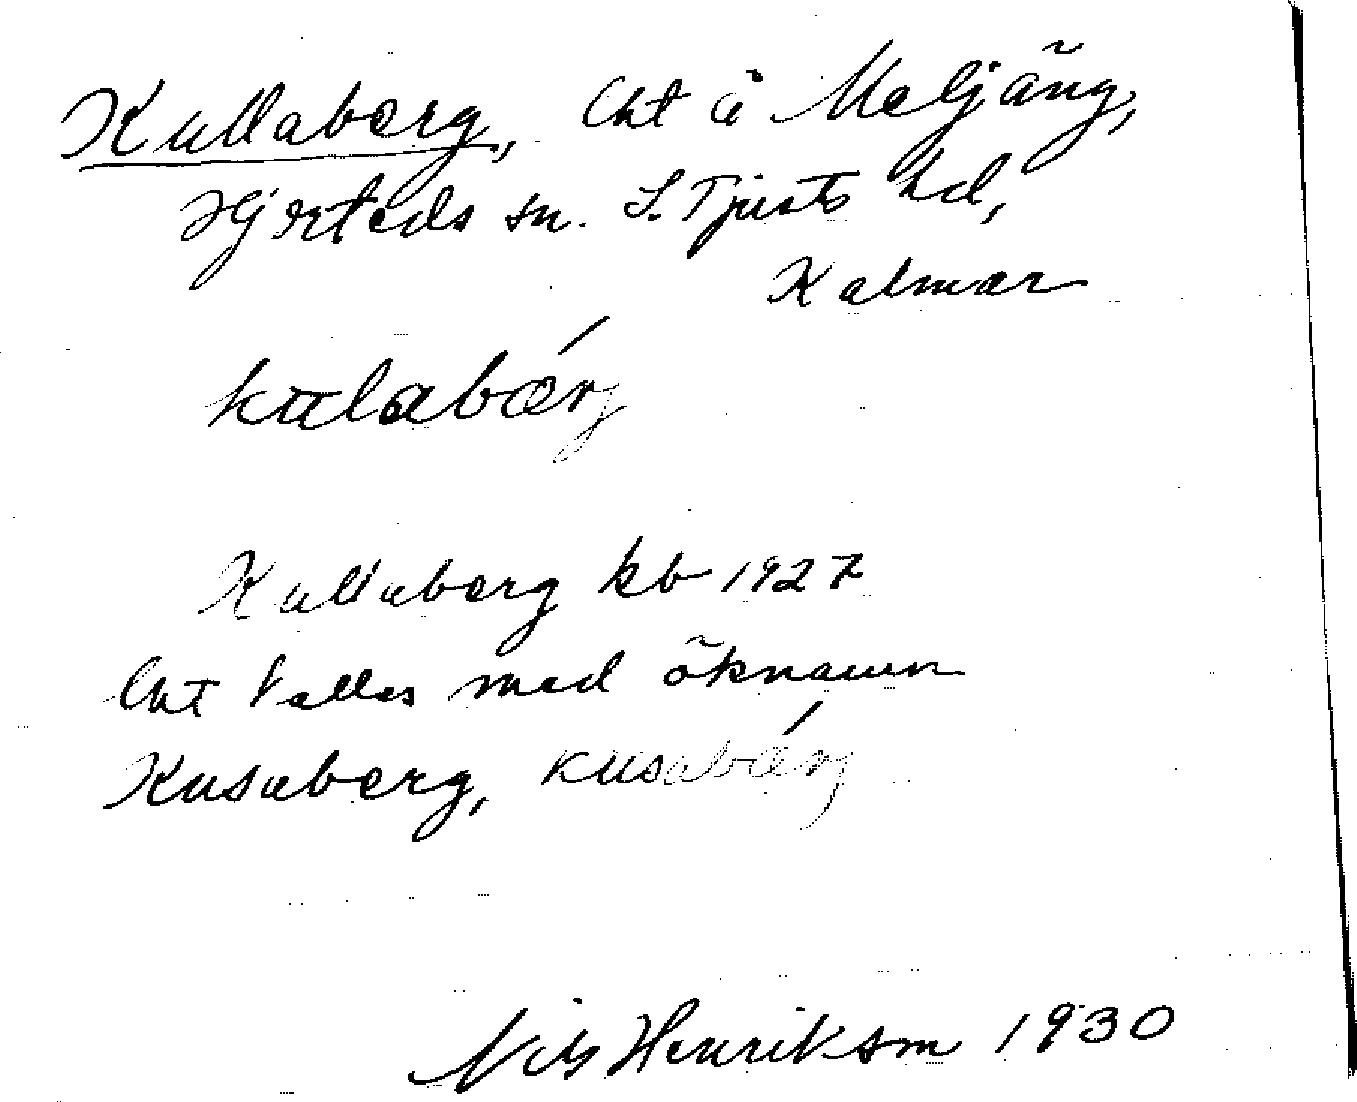 Kullaberg, lht å Maljäng,
Hjorteds sn. S. Tjusts hd,
Kalmar
kulabǽrj
Kullaberg kb 1927
lht kallas med öknamn
Kusaberg, kusabǽrj
Nils Henriksson 1930